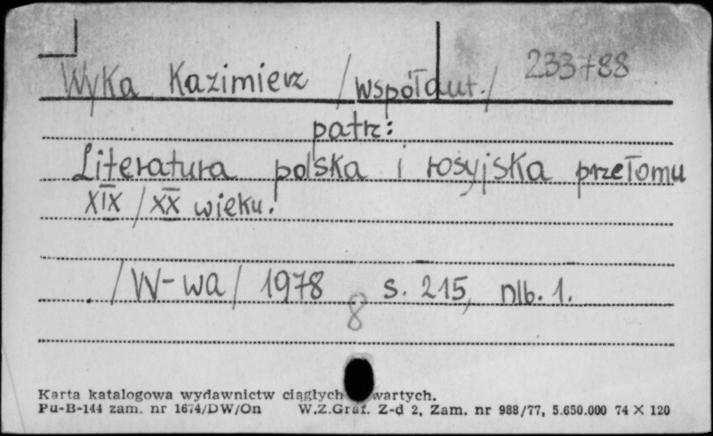 Wyka Kazimierz /współaut./ 233788
patrz:
Literatura polska i rosyjska przełomu
XIX/XX wieku.
/W-wa/ 1978 s. 215, nlb. 1.
8
Karta katalogowa wydawnictw ciągłych wartych.
Pu-B-144 zam. nr 1674/DW/On W.Z.Graf. Z-d 2, Zam. nr 988/77, 5.650.000 74 X 120